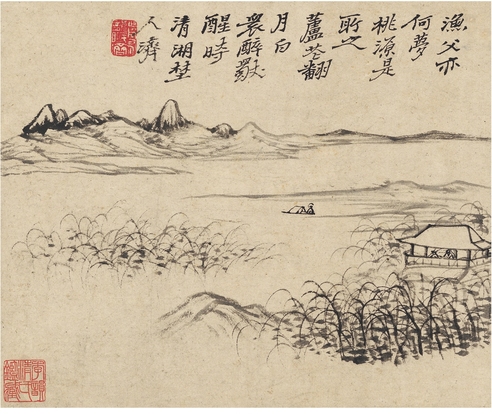 漁父亦
何夢
桃源是
所之
蘆花翻
月白
衆醉獨
醒時
清湘埜
人濟